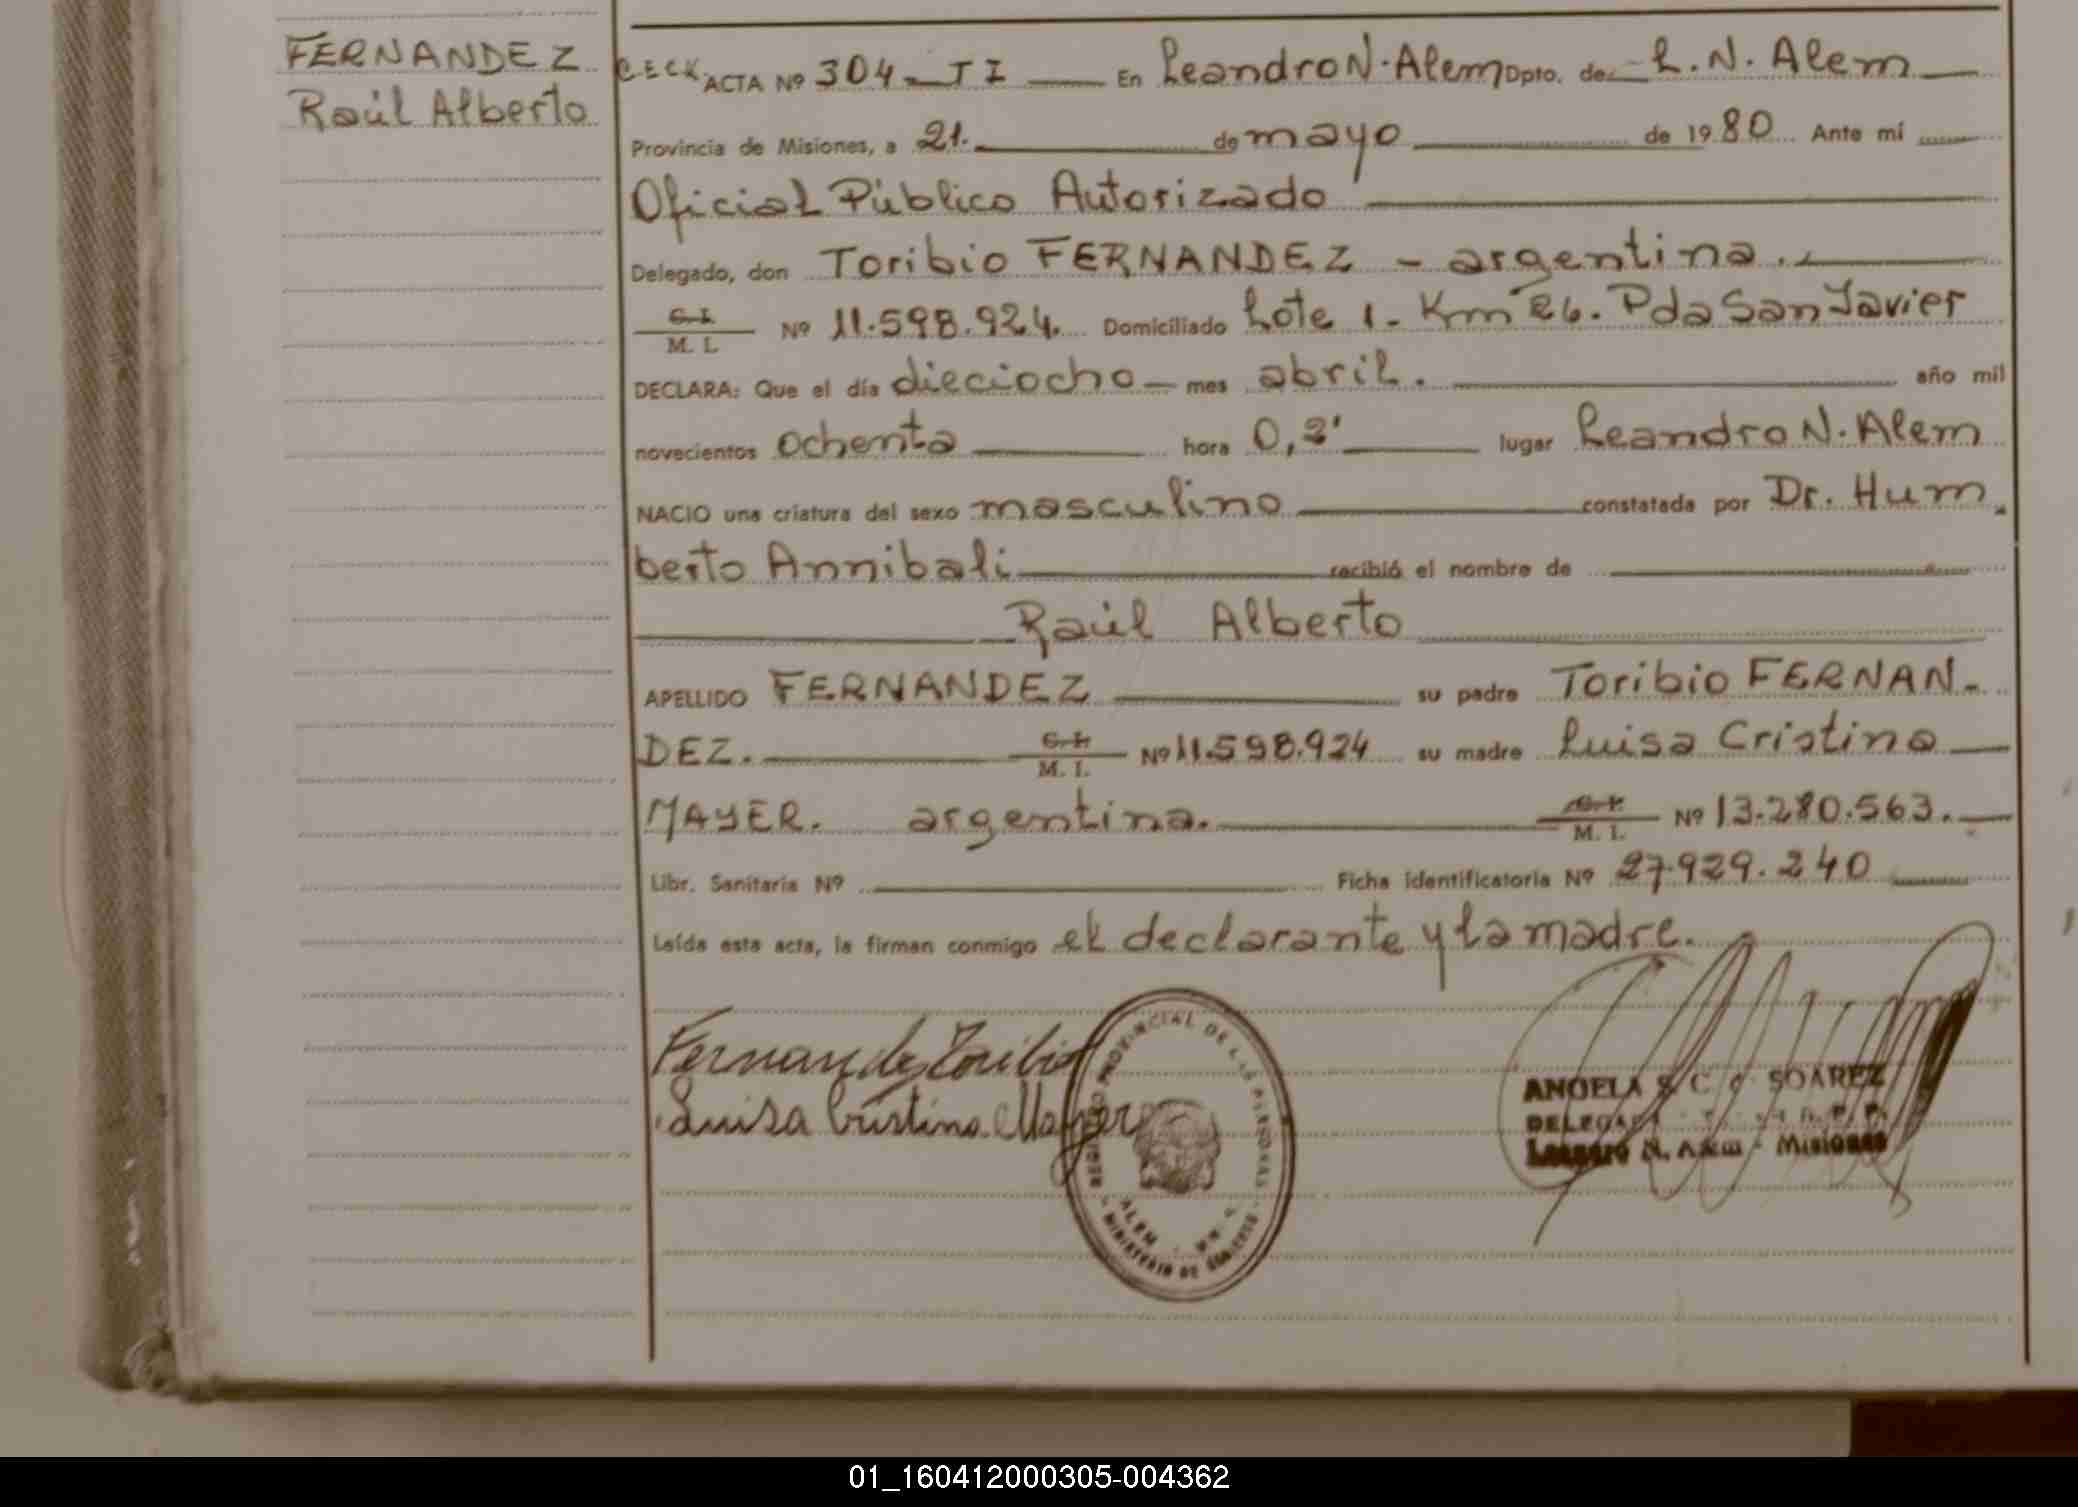 FERNANDEZ
Raúl Alberto
CECK. ACTA Nº 304 - TI En Leandro N. Alem Dpto. de L. N. Alem
Provincia de Misiones, a 21. de mayo de 1980 Ante mí
Oficial Público Autorizado
Delegado, don Toribio FERNANDEZ - argentina.
C. I. / M. I. Nº 11.598.924. Domiciliado Lote 1 - Km 26. Pda San Javier
DECLARA: Que el día dieciocho mes abril. año mil
novecientos ochenta hora 0,2' lugar Leandro N. Alem
NACIO una criatura del sexo masculino constatada por Dr. Hum
berto Annibali recibió el nombre de
Raúl Alberto
APELLIDO FERNANDEZ su padre Toribio FERNAN-
DEZ. C. I. / M. I. Nº 11.598.924 su madre Luisa Cristina
MAYER. argentina. C. I. / M. I. Nº 13.280.563.
Libr. Sanitaria Nº Ficha identificatoria Nº 27.929.240
Leída esta acta, la firman conmigo el declarante y la madre.
Fernandez Toribio
Luisa Cristina Mayer
PROVINCIAL DE LAS PERSONAS
ALEM
MINISTERIO DE
ANGELA S. C. SOAREZ
DELEGADA
Leandro N. Alem - Misiones
01_160412000305-004362